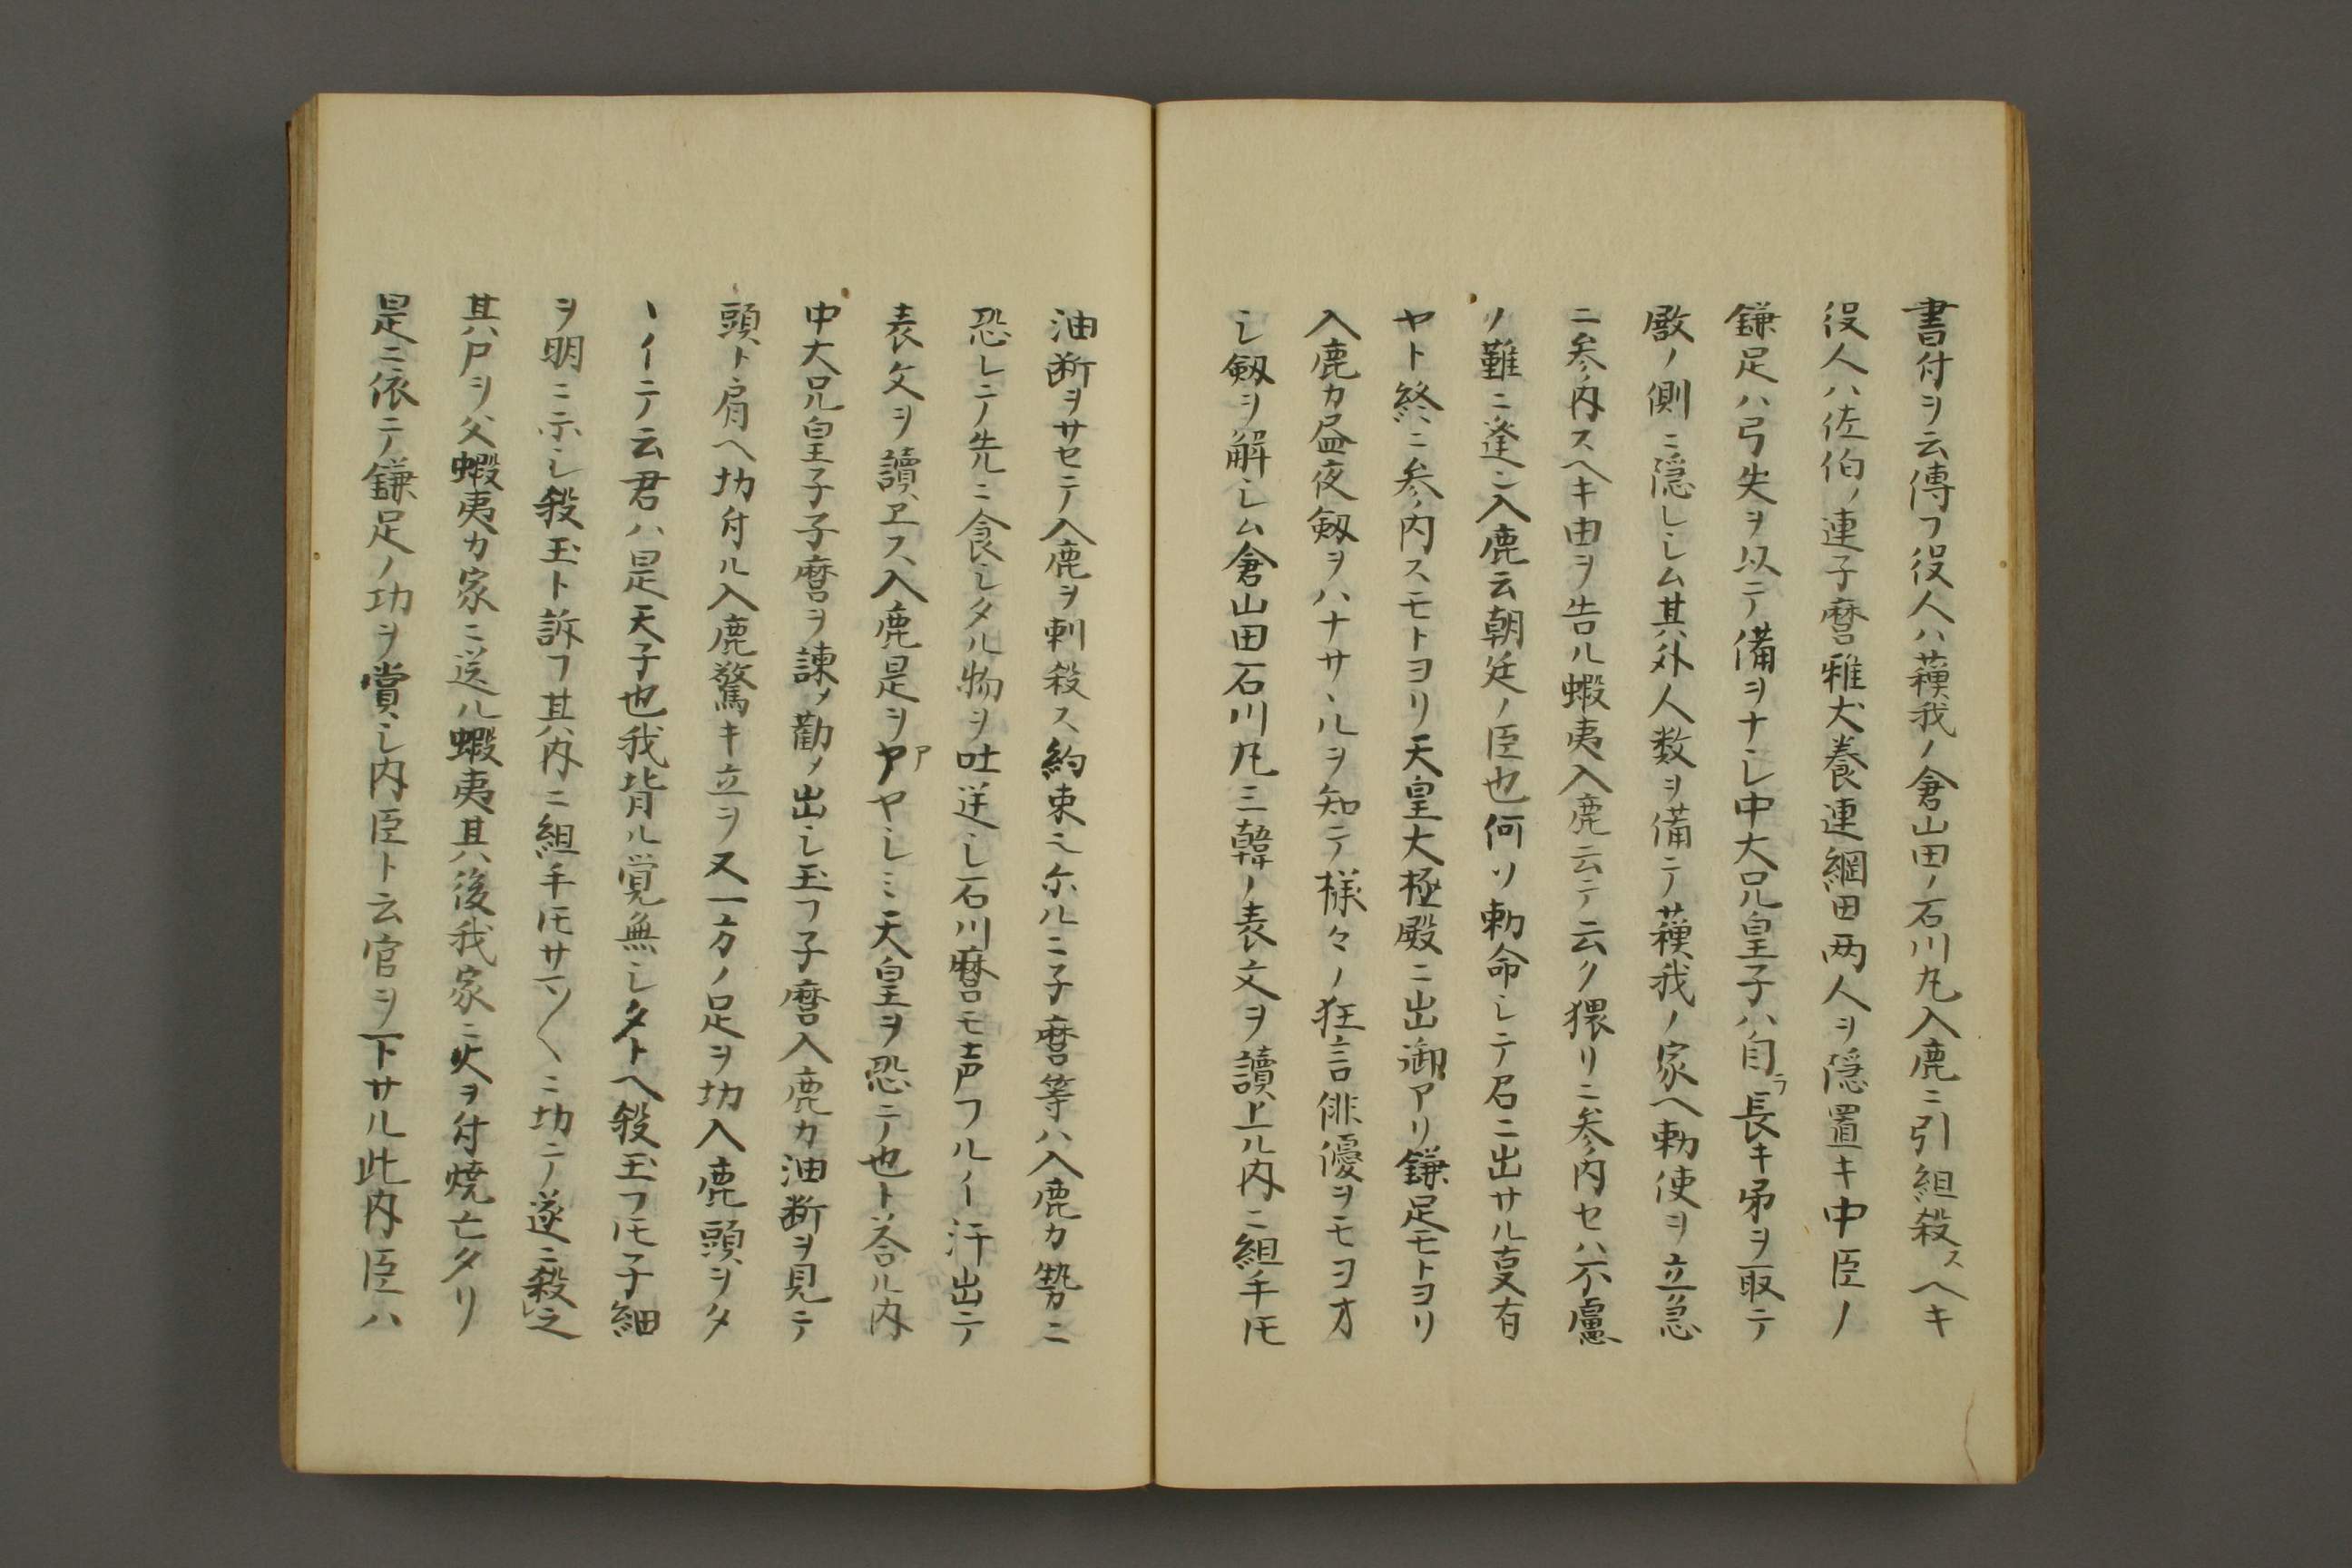 書付ヲ云傳フ役人ハ蘓我ノ倉山田ノ石川丸入鹿ニ引組殺スヘキ
役人ハ佐伯ノ連子麿雅犬養連網田两人ヲ隠置キ中臣ノ
鎌足ハ弓失ヲ以テ備ヲナシ中大兄皇子ハ自ラ長キ鉾ヲ取テ
殿ノ側ニ隠レシム其外人数ヲ備テ蘓我ノ家ヘ勅使ヲ立急
ニ参内スヘキ由ヲ告ル蝦夷入鹿云テ云ク猥リニ参内セハ不慮
ノ難ニ逢ン入鹿云朝廷ノ臣也何ソ勅命シテ召ニ出サル㕝有
ヤト終ニ参内スモトヨリ天皇大極殿ニ出御アリ鎌足モトヨリ
入鹿カ昼夜劔ヲハナサヽルヲ知テ様々ノ狂言俳優ヲモヨオ
シ劔ヲ解シム倉山田石川丸三韓ノ表文ヲ讀上ル内ニ組手𪜈
油断ヲサセテ入鹿ヲ刺殺ス約束之尓ルニ子麿等ハ入鹿カ勢ニ
恐レテ先ニ食シタル物ヲ吐逆シ石川麿モ声フルイ汗出テ
表文ヲ讀ヱス入鹿是ヲアヤシミ天皇ヲ恐テ也ト荅ル内
中大兄皇子子麿ヲ諫メ勸メ出シ玉フ子麿入鹿カ油断ヲ見テ
頭ト肩ヘ切付ル入鹿驚キ立ヲ又一方ノ足ヲ切入鹿頭ヲタ
ヽイテ云君ハ是天子也我背ル覚無シタトヘ殺玉フ𪜈子細
ヲ明ニ示シ殺玉ト訴フ其内ニ組手𪜈サン〱ニ切テ遂ニ殺之
其尸ヲ父蝦夷カ家ニ送ル蝦夷其後我家ニ火ヲ付焼亡タリ
是ニ依テ鎌足ノ功ヲ賞シ内臣ト云官ヲ下サル此内臣ハ